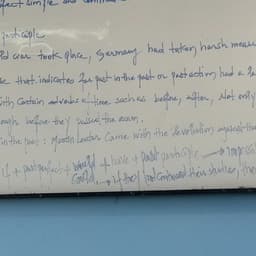 perfect simple and continu
participle
ld war took place, Germany had taken harsh measu
se that indicates far past in the past or past action had a
with certain adverbs of time such as before, after, Not only
ough before they the exam.
in the past: Martin Luther came with the revolution against the
if + past perfect + would + have + past participle → impossi
could → if they had continued their studies, the